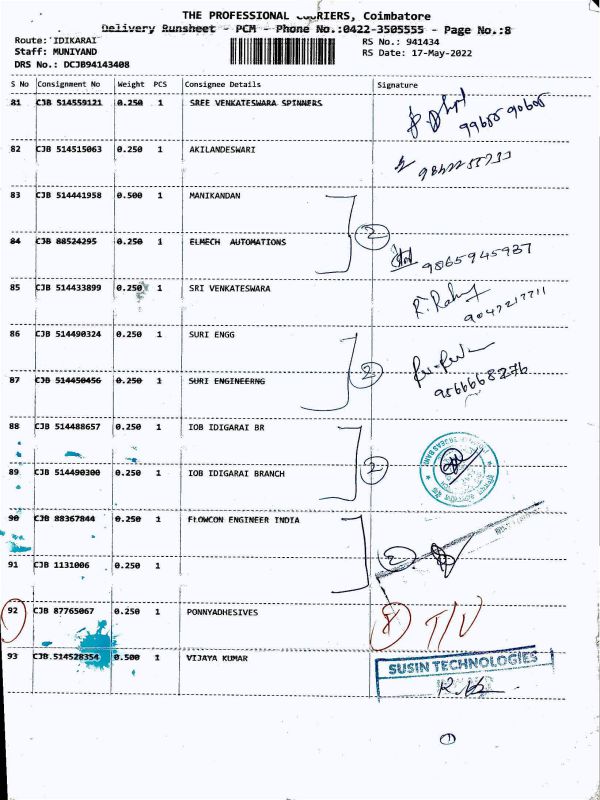 THE PROFESSIONAL COURIERS, Coimbatore
Delivery Runsheet - PCM - Phone No.:0422-3505555 - Page No.:8
Route: IDIKARAI
RS No.: 941434
Staff: MUNIYAND
RS Date: 17-May-2022
DRS No.: DCJB94143408
S No Consignment No Weight PCS Consignee Details Signature
81 CJB 514559121 0.250 1 SREE VENKATESWARA SPINNERS
82 CJB 514515063 0.250 1 AKILANDESWARI
83 CJB 514441958 0.500 1 MANIKANDAN
2
84 CJB 88524295 0.250 1 ELMECH AUTOMATIONS
9865945937
85 CJB 514433899 0.250 1 SRI VENKATESWARA
86 CJB 514490324 0.250 1 SURI ENGG
2
9566668276
87 CJB 514450456 0.250 1 SURI ENGINEERNG
88 CJB 514488657 0.250 1 IOB IDIGARAI BR
2
89 CJB 514490300 0.250 1 IOB IDIGARAI BRANCH
90 CJB 88367844 0.250 1 FLOWCON ENGINEER INDIA
2
91 CJB 1131006 0.250 1
92 CJB 87765067 0.250 1 PONNYADHESIVES
T/V
93 CJB 514528354 0.500 1 VIJAYA KUMAR
SUSIN TECHNOLOGIES
1